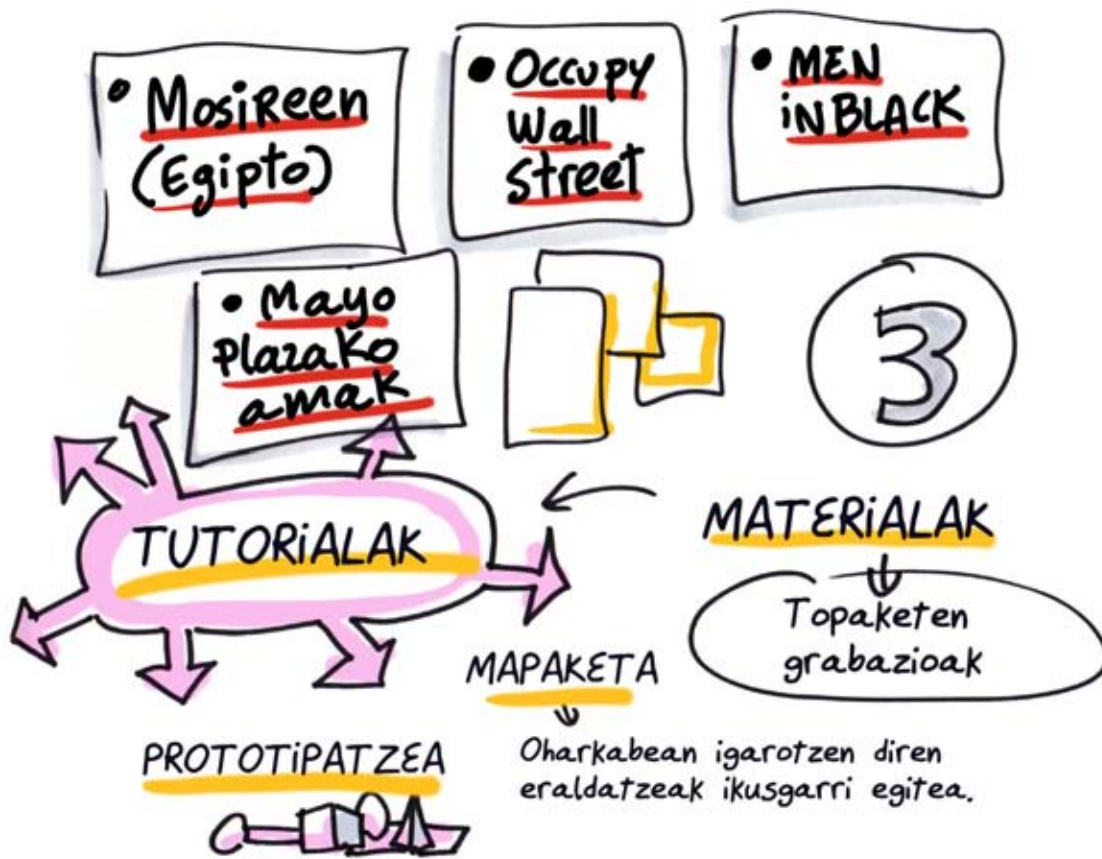 • Mosireen
(Egipto)
• Occupy
Wall
street
• MEN
iNBLACK
• Mayo
plazako
amak
3
TUTORiALAK
MATERiALAK
Topaketen
grabazioak
MAPAKETA
Oharkabean igarotzen diren
eraldatzeak ikusgarri egitea.
PROTOTiPATZEA